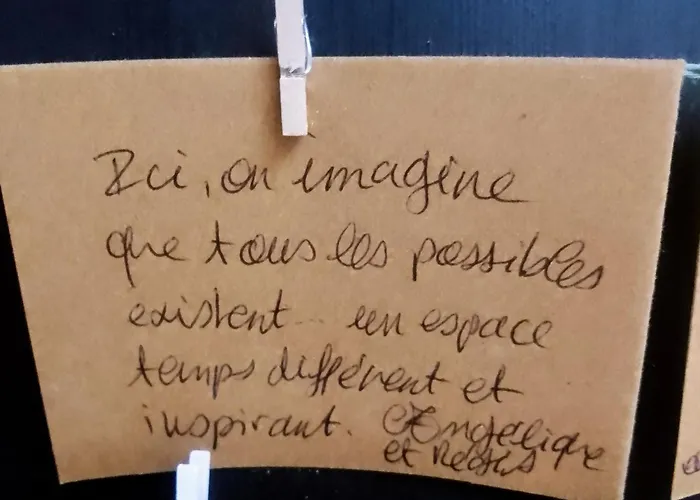 Ici, on imagine
que tous les possibles
existent... un espace
temps différent et
inspirant. Angélique
et Régis